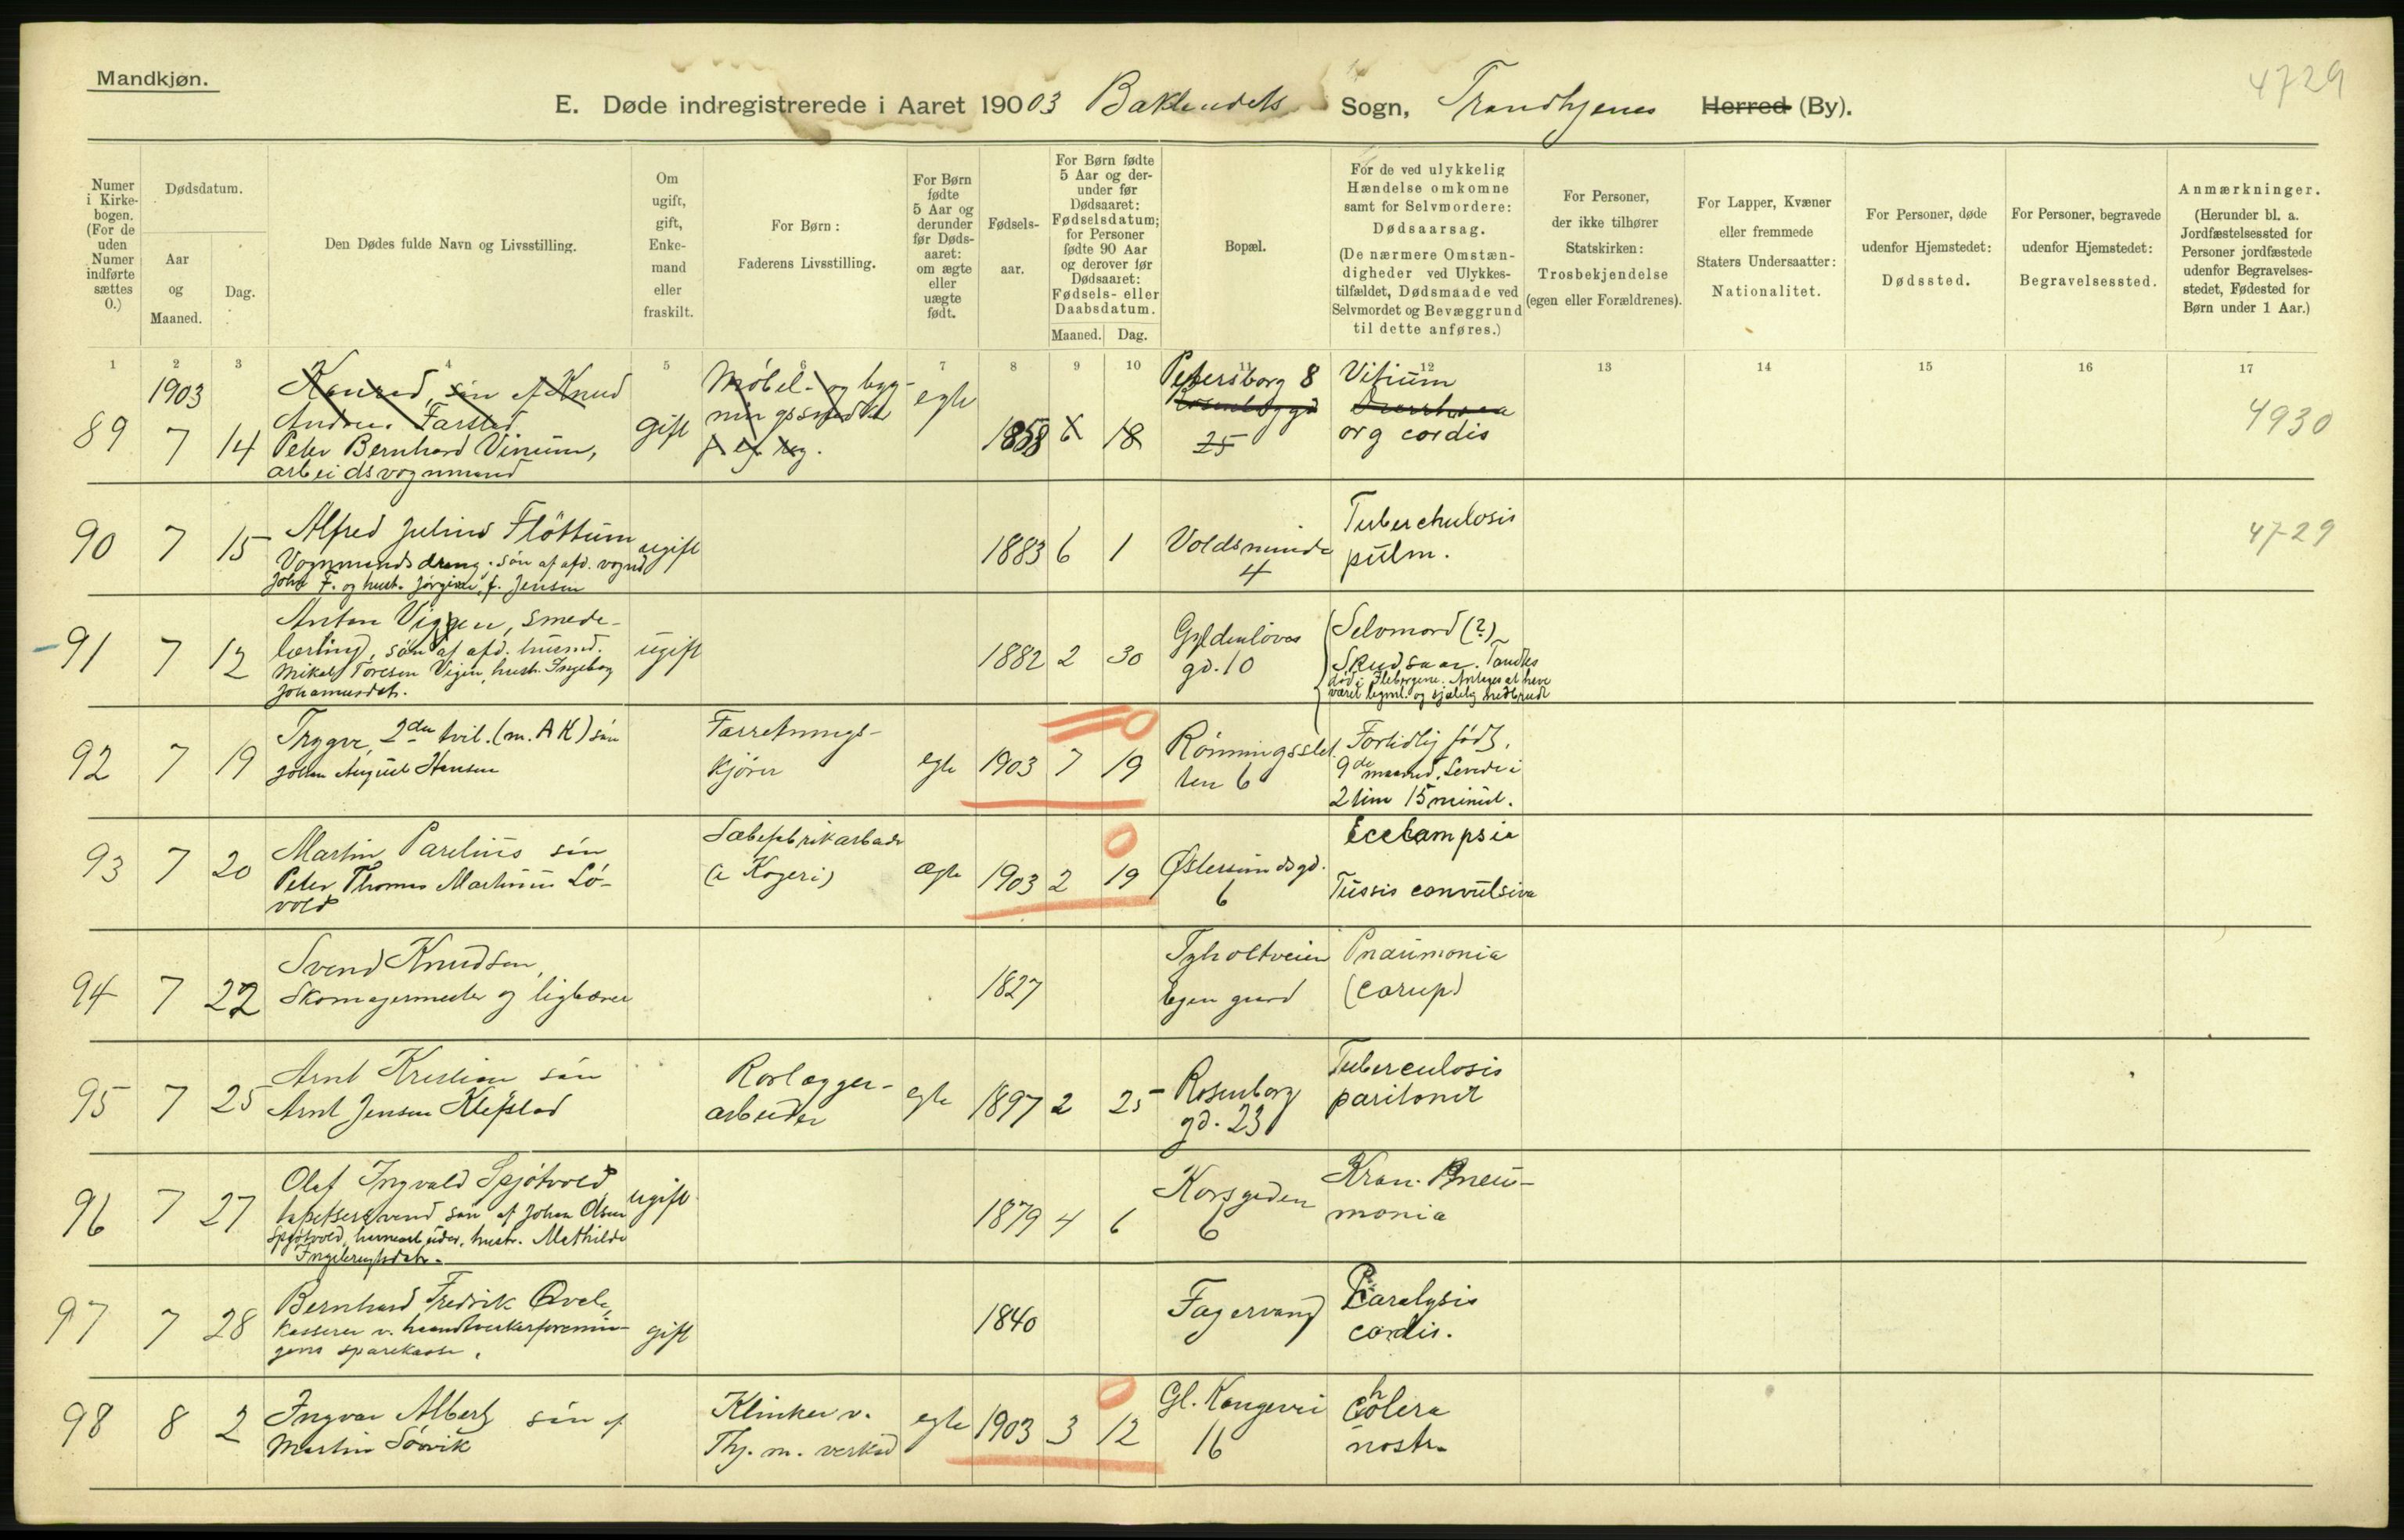 Mandkjøn.
4729
E. Døde indregistrerede i Aaret 19003 Baklandets Sogn, Trondhjems Herred (By).
Numer i Kirke-bogen. (For de uden Numer indførte sættes 0.)
Dødsdatum.
Aar og Maaned.
Dag.
Den Dødes fulde Navn og Livsstilling.
Om ugift, gift, Enke-mand eller fraskilt.
For Børn: Faderens Livsstilling.
For Børn fødte 5 Aar og derunder før Døds-aaret: om ægte eller uægte født.
Fødsels-aar.
For Børn fødte 5 Aar og der-under før Dødsaaret: Fødselsdatum; for Personer fødte 90 Aar og derover før Dødsaaret: Fødsels- eller Daabsdatum.
Maaned. Dag.
Bopæl.
For de ved ulykkelig Hændelse omkomne samt for Selvmordere: Dødsaarsag. (De nærmere Omstæn-digheder ved Ulykkes-tilfældet, Dødsmaade ved Selvmordet og Bevæggrund til dette anføres.)
For Personer, der ikke tilhører Statskirken: Trosbekjendelse (egen eller Forældrenes).
For Lapper, Kvæner eller fremmede Staters Undersaatter: Nationalitet.
For Personer, døde udenfor Hjemstedet: Dødssted.
For Personer, begravede udenfor Hjemstedet: Begravelsessted.
Anmærkninger. (Herunder bl. a. Jordfæstelsessted for Personer jordfæstede udenfor Begravelses-stedet, Fødested for Børn under 1 Aar.)
1 2 3 4 5 6 7 8 9 10 11 12 13 14 15 16 17
1903
89 7 14
Konrad, søn af Knud
Farstad
Peter Bernhard Vinum,
arbeidsvognmand
gift
Møbel- og byg-
egte
1858 6 18
Petersborg 8
25
Vitium
org cordis
4930
90 7 15
Alfred Julius Fløttum
Vognmandsdreng, søn af afd. vognmd
John F. og hust. f. Jensen
ugift
1883 6 1
Voldsminde
4
Tuberchulosis
pulm.
4729
91 7 12
Anton Viggen, smede-
lærling, søn af afd. husmd.
Mikal Toresen Vigen, hustr. Ingeborg
Johannesdtr.
ugift
1882 2 30
Gyldenløves
gd. 10
Selvmord (?)
Skudsaar. Fandtes
død i Ilebergene. Antages at have
været legml. og sjælelig nedbrudt
92 7 19
Trygve, 2den tvil. (m. AK) søn
Johan August Hansen
Forretnings-
kjører
egte 1903 7 19
Rønningsslet
ten 6
Fortidlig født,
9de maaned. Levede i
2 tim 15 minut.
93 7 20
Martin Parelius søn
Peter Thomas Martinus Lø-
vold
Sæbefabrikarbeider
(a Kogeri)
ægte 1903 2 19
Østersundsgd.
6
Ecclampsia
Tussis convulsiva
94 7 22
Svend Knudsen,
Skomagermester og ligbærer
1827
Tyholtveien
Egen gaard
Pnaumonia
(corup)
95 7 25
Arnt Kristian søn
Arnt Jensen Klefstad
Rørlægger-
arbeider
egte 1897 2 25
Rosenborg
gd. 23
Tuberculosis
paritonit
96 7 27
Olaf Ingvald Spjøtvold
tapetsersvend søn af Johan Olsen
Spjøtvold, hustr. Mathilde
Ingebrigtsdatr.
ugift
1879 4 6
Korsgaden
6
Kron. Pneu-
monia
97 7 28
Bernhard Fredrik Qvale,
Kasserer v. haandverkerforenin-
gens sparekasse.
gift
1840
Fagervang
Paralysis
cordis.
98 8 2
Ingvar Albert søn af
Martin Søvik
Klinker v.
Thj. m. verksd
egte 1903 3 12
Gl. Kongevei
16
Cholera
nostr.